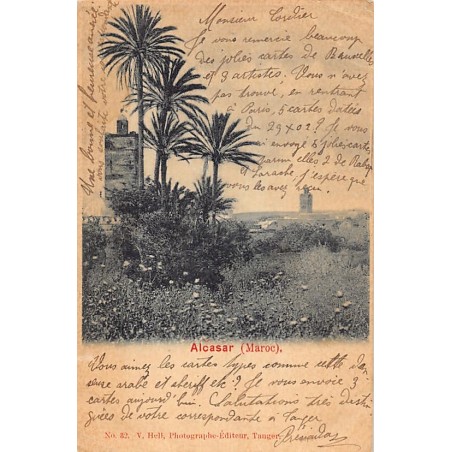 Monsieur Cordier
Je vous remercie beaucoup
des jolies cartes de Bruxelles
et 3 artistes. Vous n'avez
pas trouvé, en rentrant
à Paris, 5 cartes datées
du 29 x 02? Je vous
ai envoyé 5 jolies cartes
parmi elles 2 de Rabat
Larache, j'espère que
vous les avez reçu.
Une bonne et heureuse année
je vous souhaite votre
Alcasar (Maroc).
Vous aimez les cartes types comme cette dan
seuse arabe et sheriff etc.? Je vous envoie 3
cartes aujourd'hui. Salutations très distin
guées de votre correspondante à Tanger
No. 32. V. Hell, Photographe-Éditeur, Tanger.